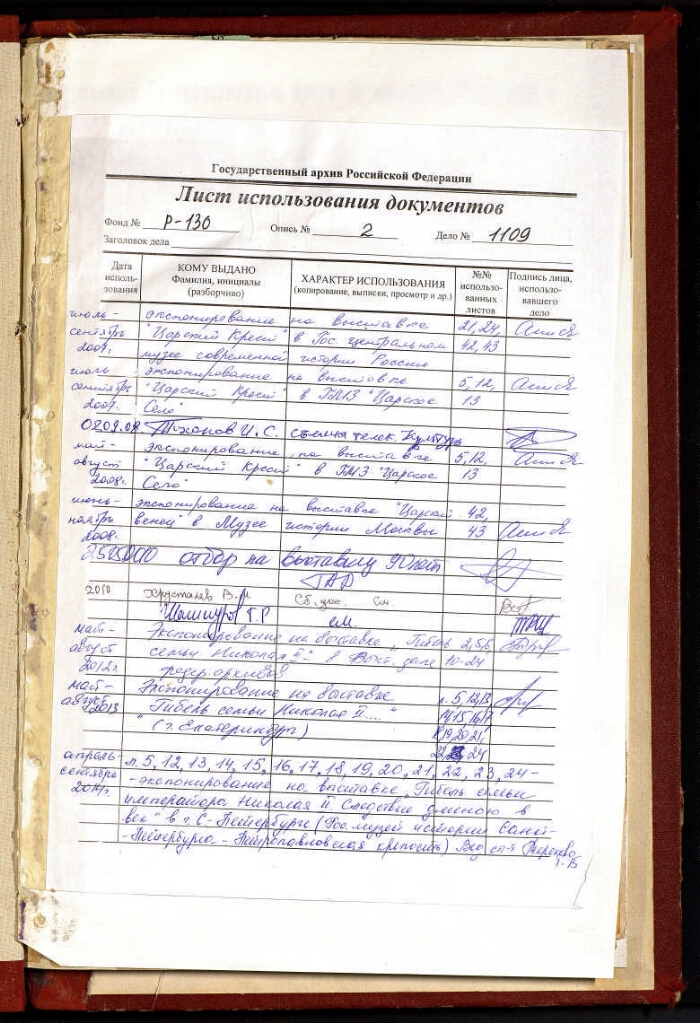 Государственный архив Российской Федерации
Лист использования документов
Фонд № Р-130 Опись № 2 Дело № 1109
Заголовок дела
Дата исполь-зования КОМУ ВЫДАНО Фамилия, инициалы (разборчиво) ХАРАКТЕР ИСПОЛЬЗОВАНИЯ (копирование, выписки, просмотр и др.) №№ использо-ванных листов Подпись лица, использо-вавшего дело
июль- экспонирование на выставке 21, 24,
сентябрь "Царский Крест" в Гос. центральном 42, 43
2007г. музее современной истории России
июль экспонирование на выставке 5, 12,
сентябрь "Царский Крест" в ГМЗ "Царское 13
2007. Село"
0209.08 Тихонов И.С. съемка телек. Культура
май- экспонирование на выставке 5, 12,
август "Царский Крест" в ГМЗ "Царское 13
2008г. Село"
июнь- экспонирование на выставке "Царский 42,
ноябрь венец" в Музее истории Москвы 43
2008.
отбор на выставку 90 лет
ГАРФ
2010 Хрусталев В.М. см.
см.
май- Экспонирование на выставке "Гибель 2,5,6
август семьи Николая II" в Выст. зале 10-24
2012г. федер. архивов
май- Экспонирование на выставке л. 5, 12, 13
август "Гибель семьи Николая II...." 14, 15, 16, 17
2013 (г. Екатеринбург) 19, 20, 21
22, 23, 24
апрель- л. 5, 12, 13, 14, 15, 16, 17, 18, 19, 20, 21, 22, 23, 24-
сентябрь -экспонирование на выставке "Гибель семьи
2014г. императора Николая II. Следствие длиною в
век" в г. С-Петербурге (Гос. музей истории Санкт-
-Петербурга - Петропавловская крепость)